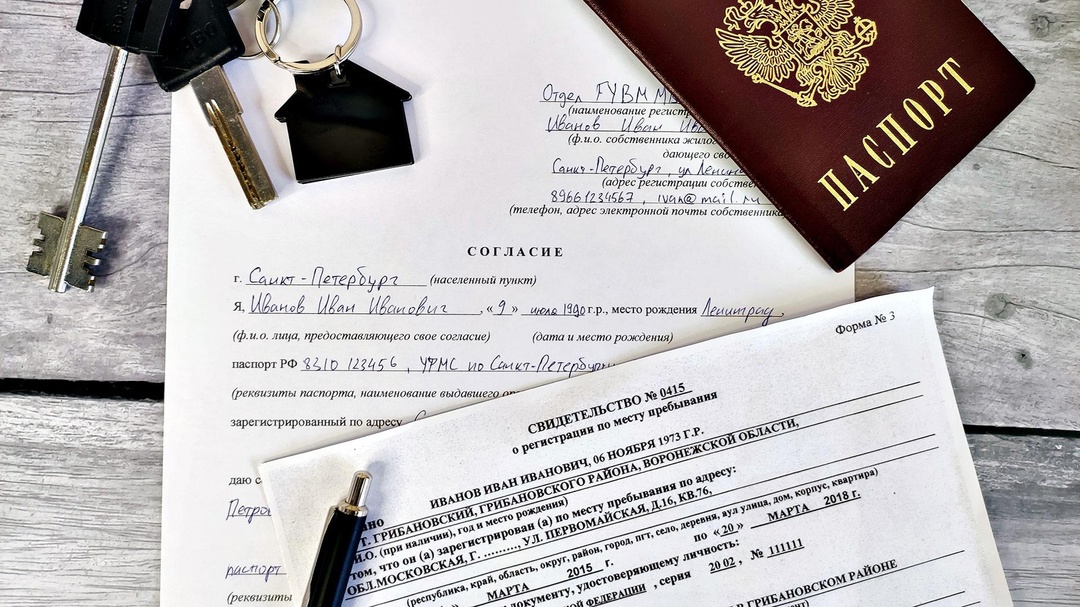 ПАСПОРТ
Отдел ГУВМ
(наименование
Иванов Иван
(ф.и.о. собственника
дающего
Санкт-Петербург, ул
(адрес регистрации
89661234567, ivan@mail.ru
(телефон, адрес электронной почты собственника
СОГЛАСИЕ
г. Санкт-Петербург (населенный пункт)
Я, Иванов Иван Иванович, «9» июля 1990 г.р., место рождения Ленинград,
(ф.и.о. лица, предоставляющего свое согласие) (дата и место рождения)
паспорт РФ 8310 123456, УФМС по
(реквизиты паспорта, наименование выдавшего
зарегистрированный по адресу
даю
паспорт
(реквизиты
Форма № 3
СВИДЕТЕЛЬСТВО № 0415
о регистрации по месту пребывания
ИВАНОВ ИВАН ИВАНОВИЧ, 06 НОЯБРЯ 1973 Г.Р.
Т. ГРИБАНОВСКИЙ, ГРИБАНОВСКОГО РАЙОНА, ВОРОНЕЖСКОЙ ОБЛАСТИ,
(при наличии), год и место рождения)
том, что он (а) зарегистрирован (а) по месту пребывания по адресу:
ОБЛ.МОСКОВСКАЯ, Г. ........., УЛ. ПЕРВОМАЙСКАЯ, Д.16, КВ.76,
(республика, край, область, округ, район, город, пгт, село, деревня, аул улица, дом, корпус, квартира)
МАРТА 2015 г. по «20» МАРТА 2018 г.
документу, удостоверяющему личность:
ФЕДЕРАЦИИ, серия 20 02, № 111111
В ГРИБАНОВСКОМ РАЙОНЕ